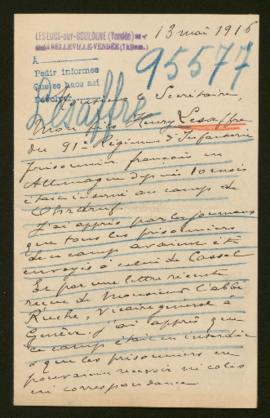 13 mai 1916
LES LUCS-sur-BOULOGNE (Vendée)
BELLEVILLE-VENDÉE
A
Pedir informes
95577
Lesaffre
Monsieur le Secrétaire,
Mon Henry Lesaffre
du 91e Régiment d'Infanterie
prisonnier français en
Allemagne depuis 10 mois
était interné au camp de
Ohrdruf.
J'ai appris par les journaux
que tous les prisonniers
de ce camp avaient été
envoyés à celui de Cassel
Et par une lettre récente
reçue de Monsieur l'abbé
Ruche, Vicaire général à
Genève, j'ai appris que
ce camp était en
que les prisonniers ne
pouvaient recevoir ni colis
ni correspondance